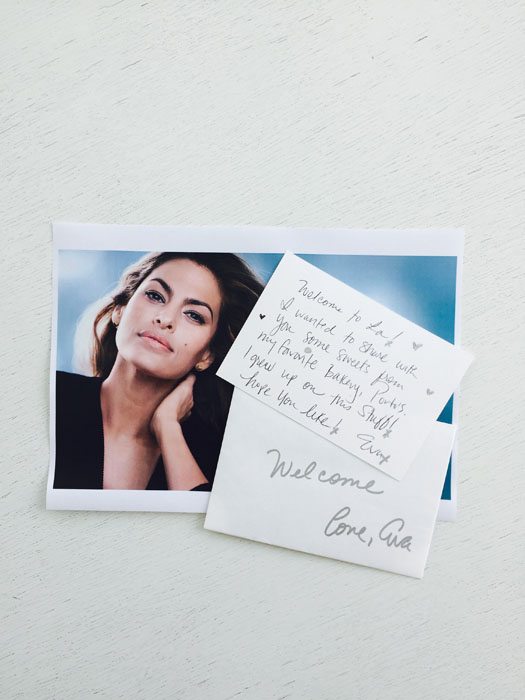 Welcome to La!
I wanted to share with
you some sweets from
my favorite bakery, Porto's.
I grew up on this stuff!
hope you like!
Eva
Welcome
Love, Eva